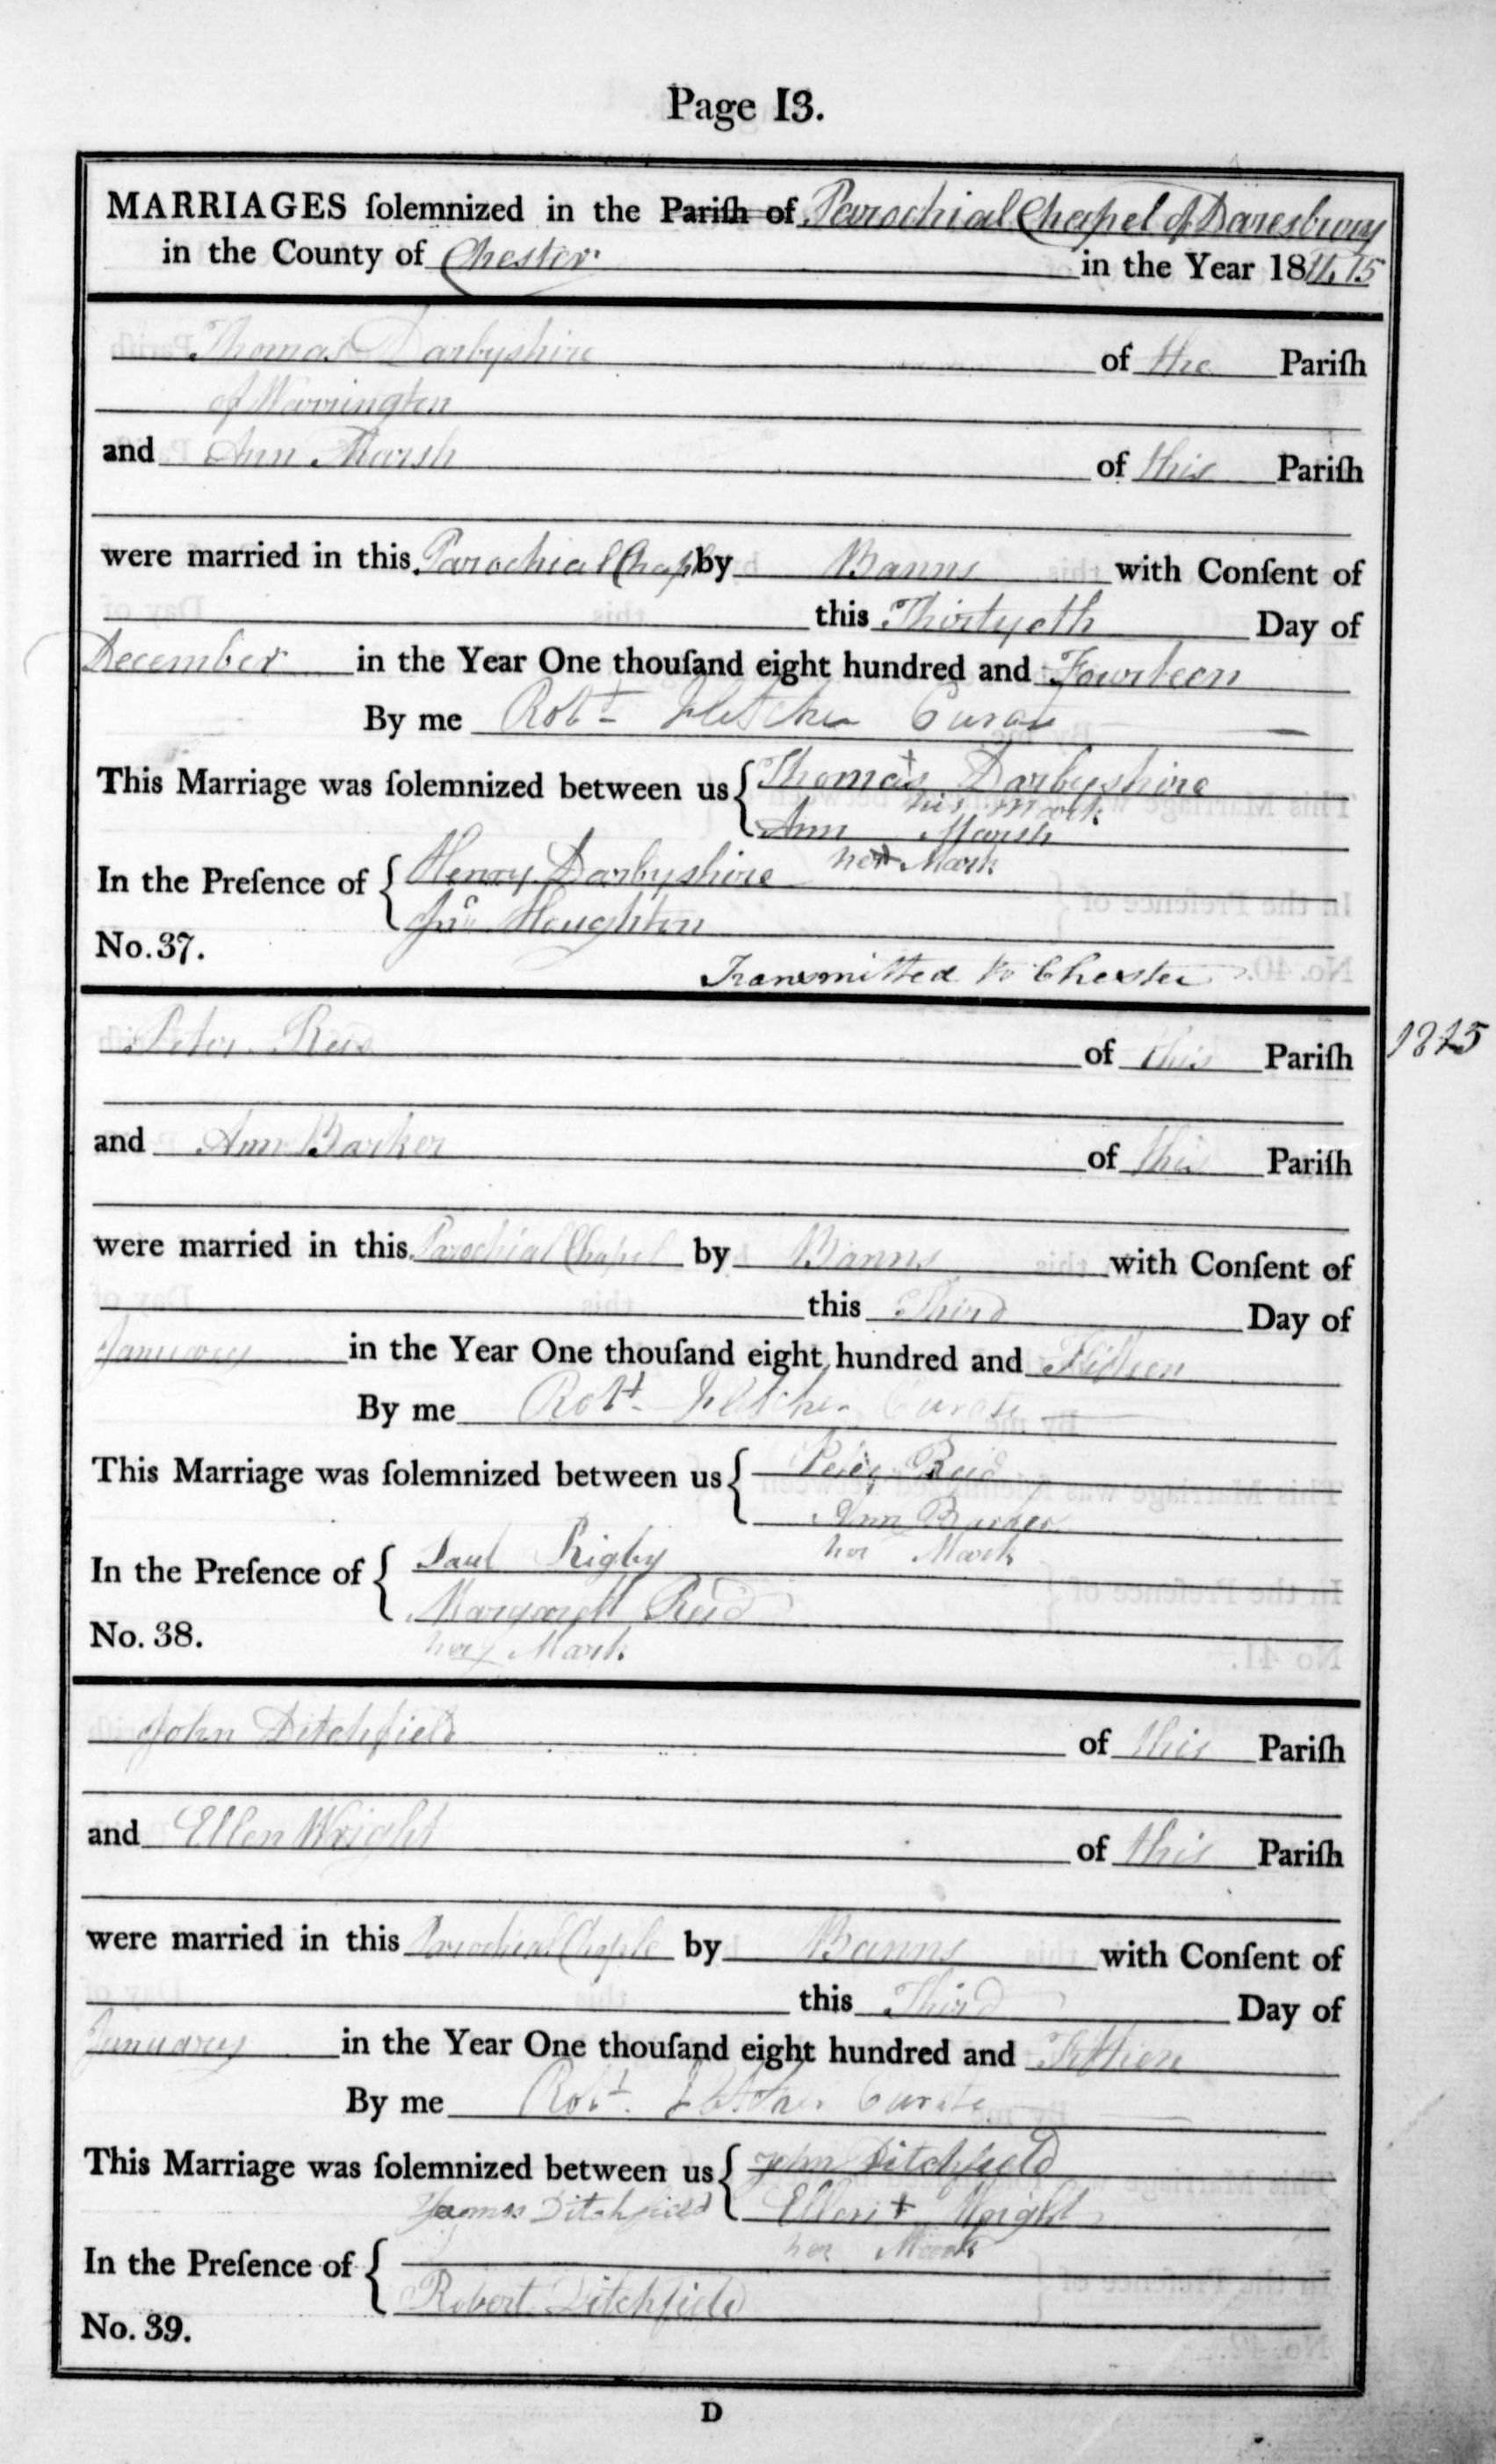 Page 13.
MARRIAGES ſolemnized in the Pariſh of Parochial Chapel of Daresbury
in the County of Chester in the Year 1814, 15
Thomas Darbyshire of the Pariſh
of Warrington
and Ann Marsh of this Pariſh
were married in this Parochial Chapl by Banns with Conſent of
this Thirtyeth Day of
December in the Year One thouſand eight hundred and Fourteen
By me Robt Fletcher Curate
This Marriage was ſolemnized between us { Thomas + Darbyshire
his mark
Ann Marsh
her Mark
In the Preſence of { Henry Darbyshire
Jno Houghton
No. 37.
Transmitted to Chester
1815
Peter Reid of this Pariſh
and Ann Barker of this Pariſh
were married in this Parochial Chapel by Banns with Conſent of
this Third Day of
January in the Year One thouſand eight hundred and Fifteen
By me Robt Fletcher Curate
This Marriage was ſolemnized between us { Peter Reid
Ann Barker
her Mark
In the Preſence of { Paul Rigby
Margarett Reid
her x Mark
No. 38.
John Ditchfield of this Pariſh
and Ellen Wright of this Pariſh
were married in this Parochial Chaple by Banns with Conſent of
this Third Day of
January in the Year One thouſand eight hundred and Fifteen
By me Robt Fletcher Curate
This Marriage was ſolemnized between us { John Ditchfield
James Ditchfield Ellen + Wright
her Mark
In the Preſence of {
Robert Ditchfield
No. 39.
D